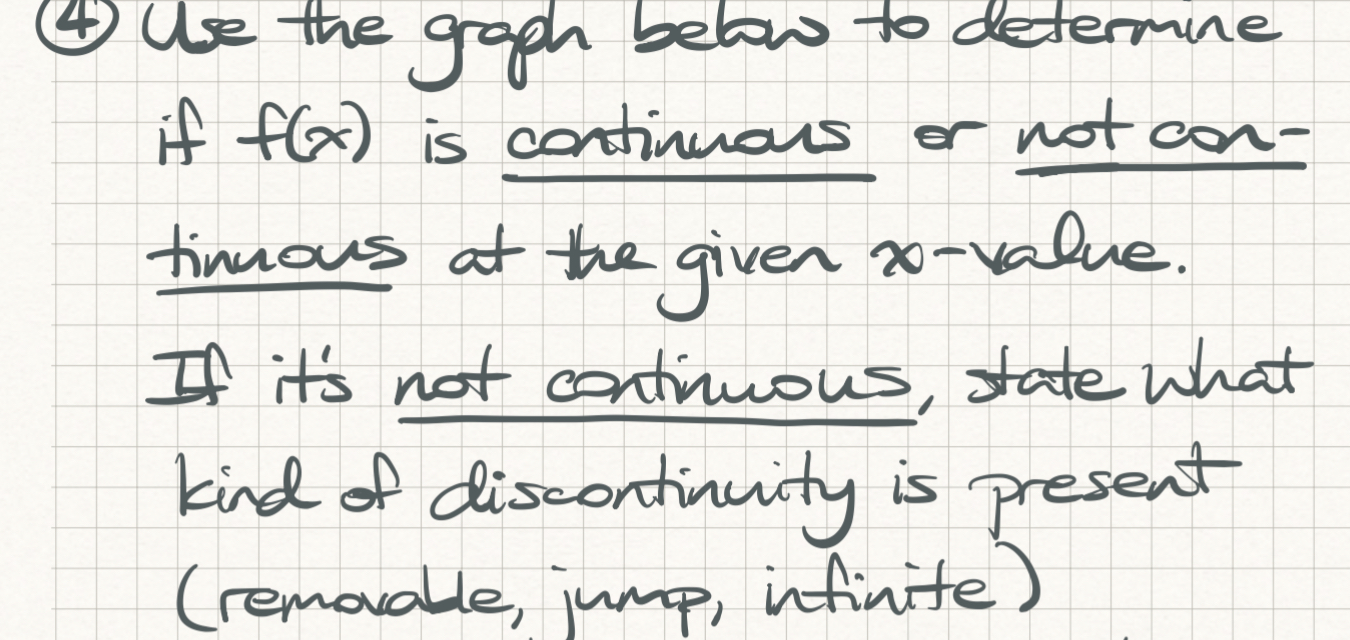 ④ Use the graph below to determine
if f(x) is continuous or not con-
tinuous at the given x-value.
If it's not continuous, state what
kind of discontinuity is present
(removable, jump, infinite)